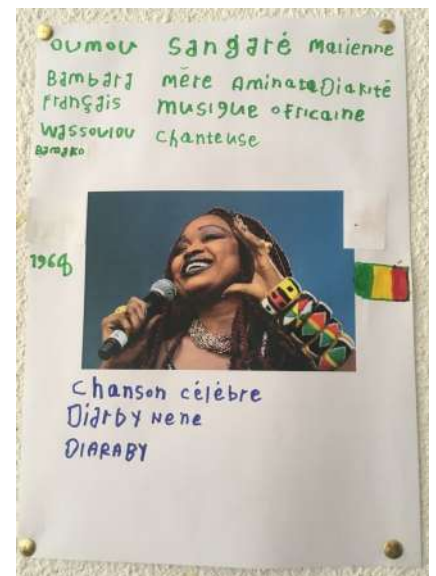 OUMOU Sangaré Malienne
Bambara mère Aminata Diakité
Français musique africaine
Wassoulou chanteuse
Bamako
1968
Chanson célèbre
Diarby Nene
DIARABY